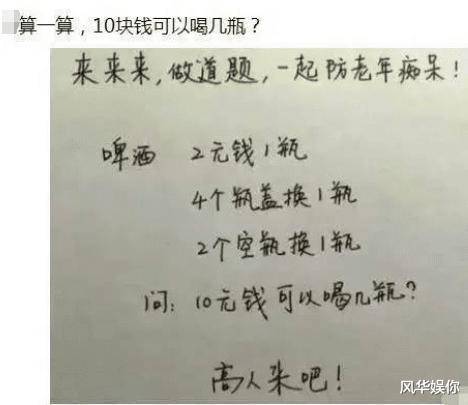 算一算，10块钱可以喝几瓶？
来来来，做道题，一起防老年痴呆！
啤酒 2元钱1瓶
4个瓶盖换1瓶
2个空瓶换1瓶
问：10元钱可以喝几瓶？
高人来吧！
风华娱你